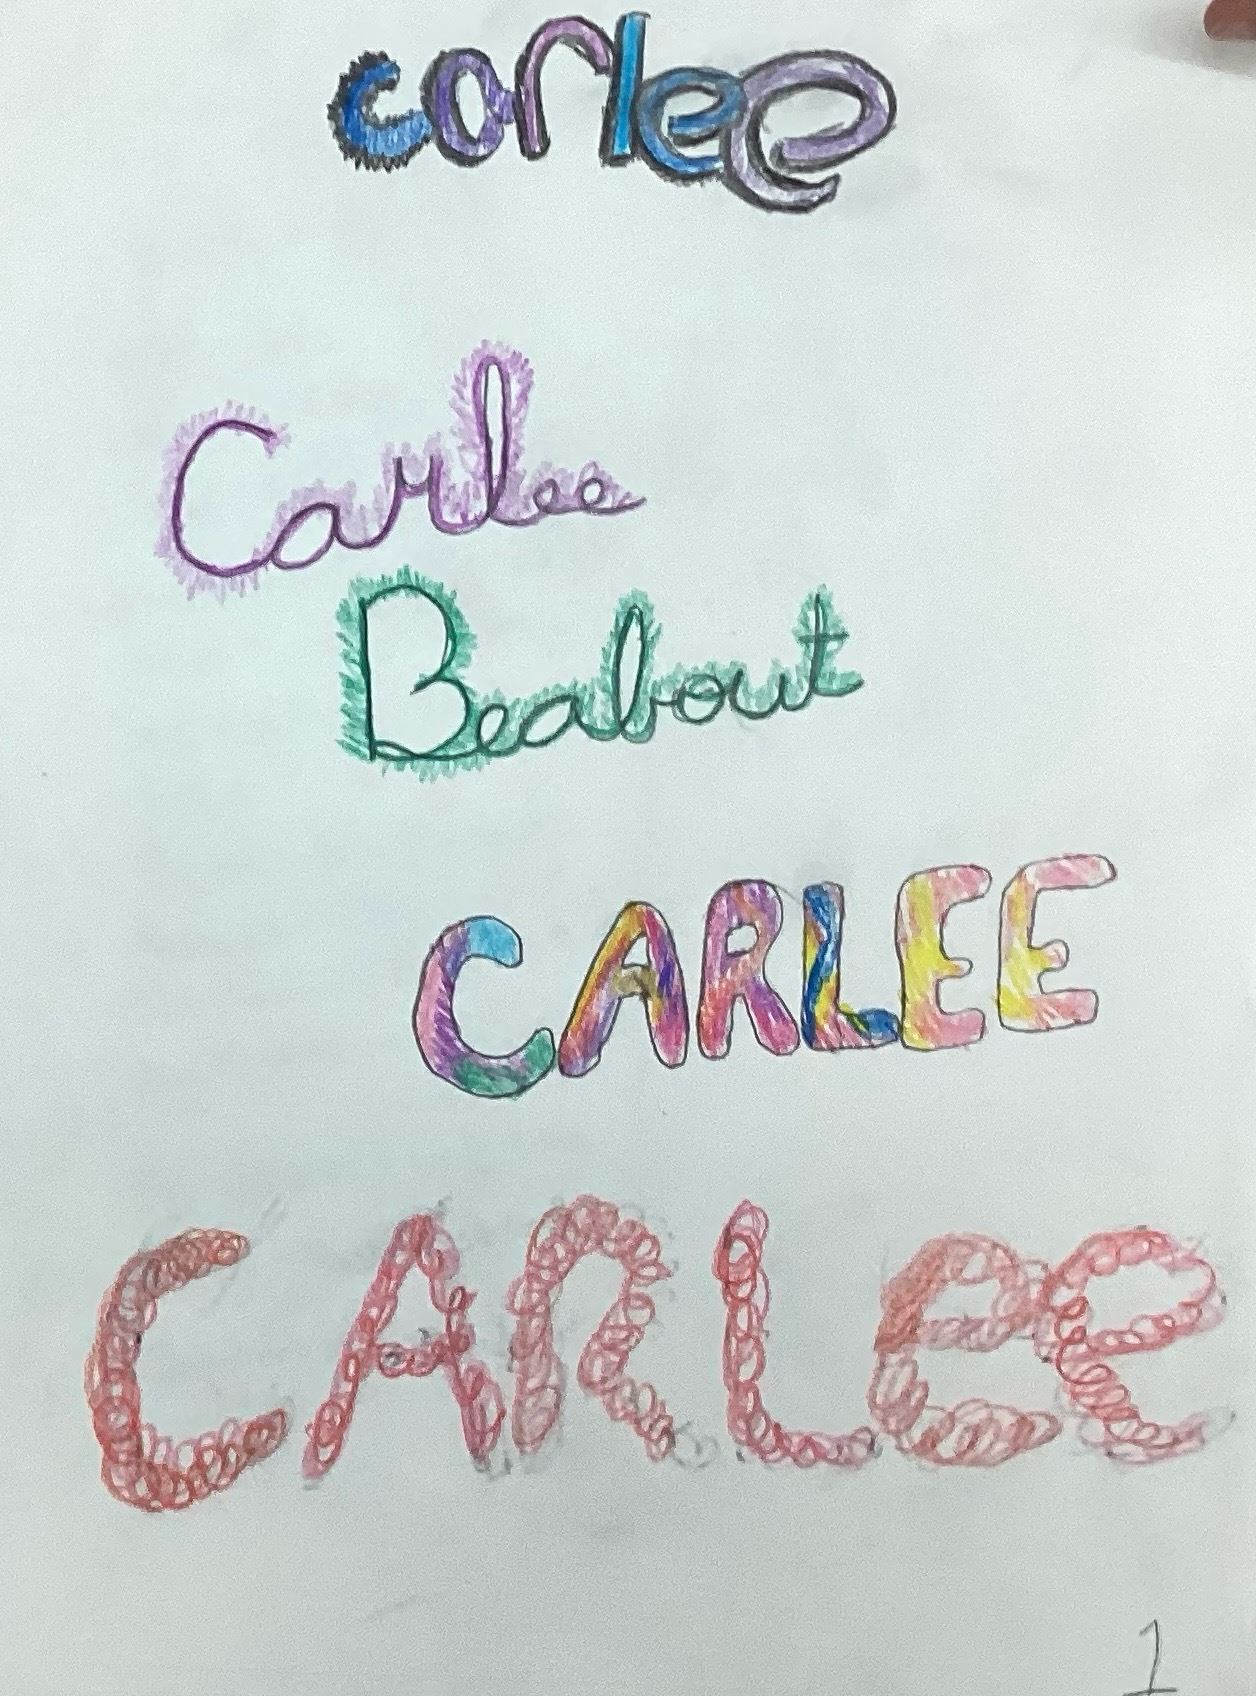 carlee
Carlee
Beabout
CARLEE
CARLee
1